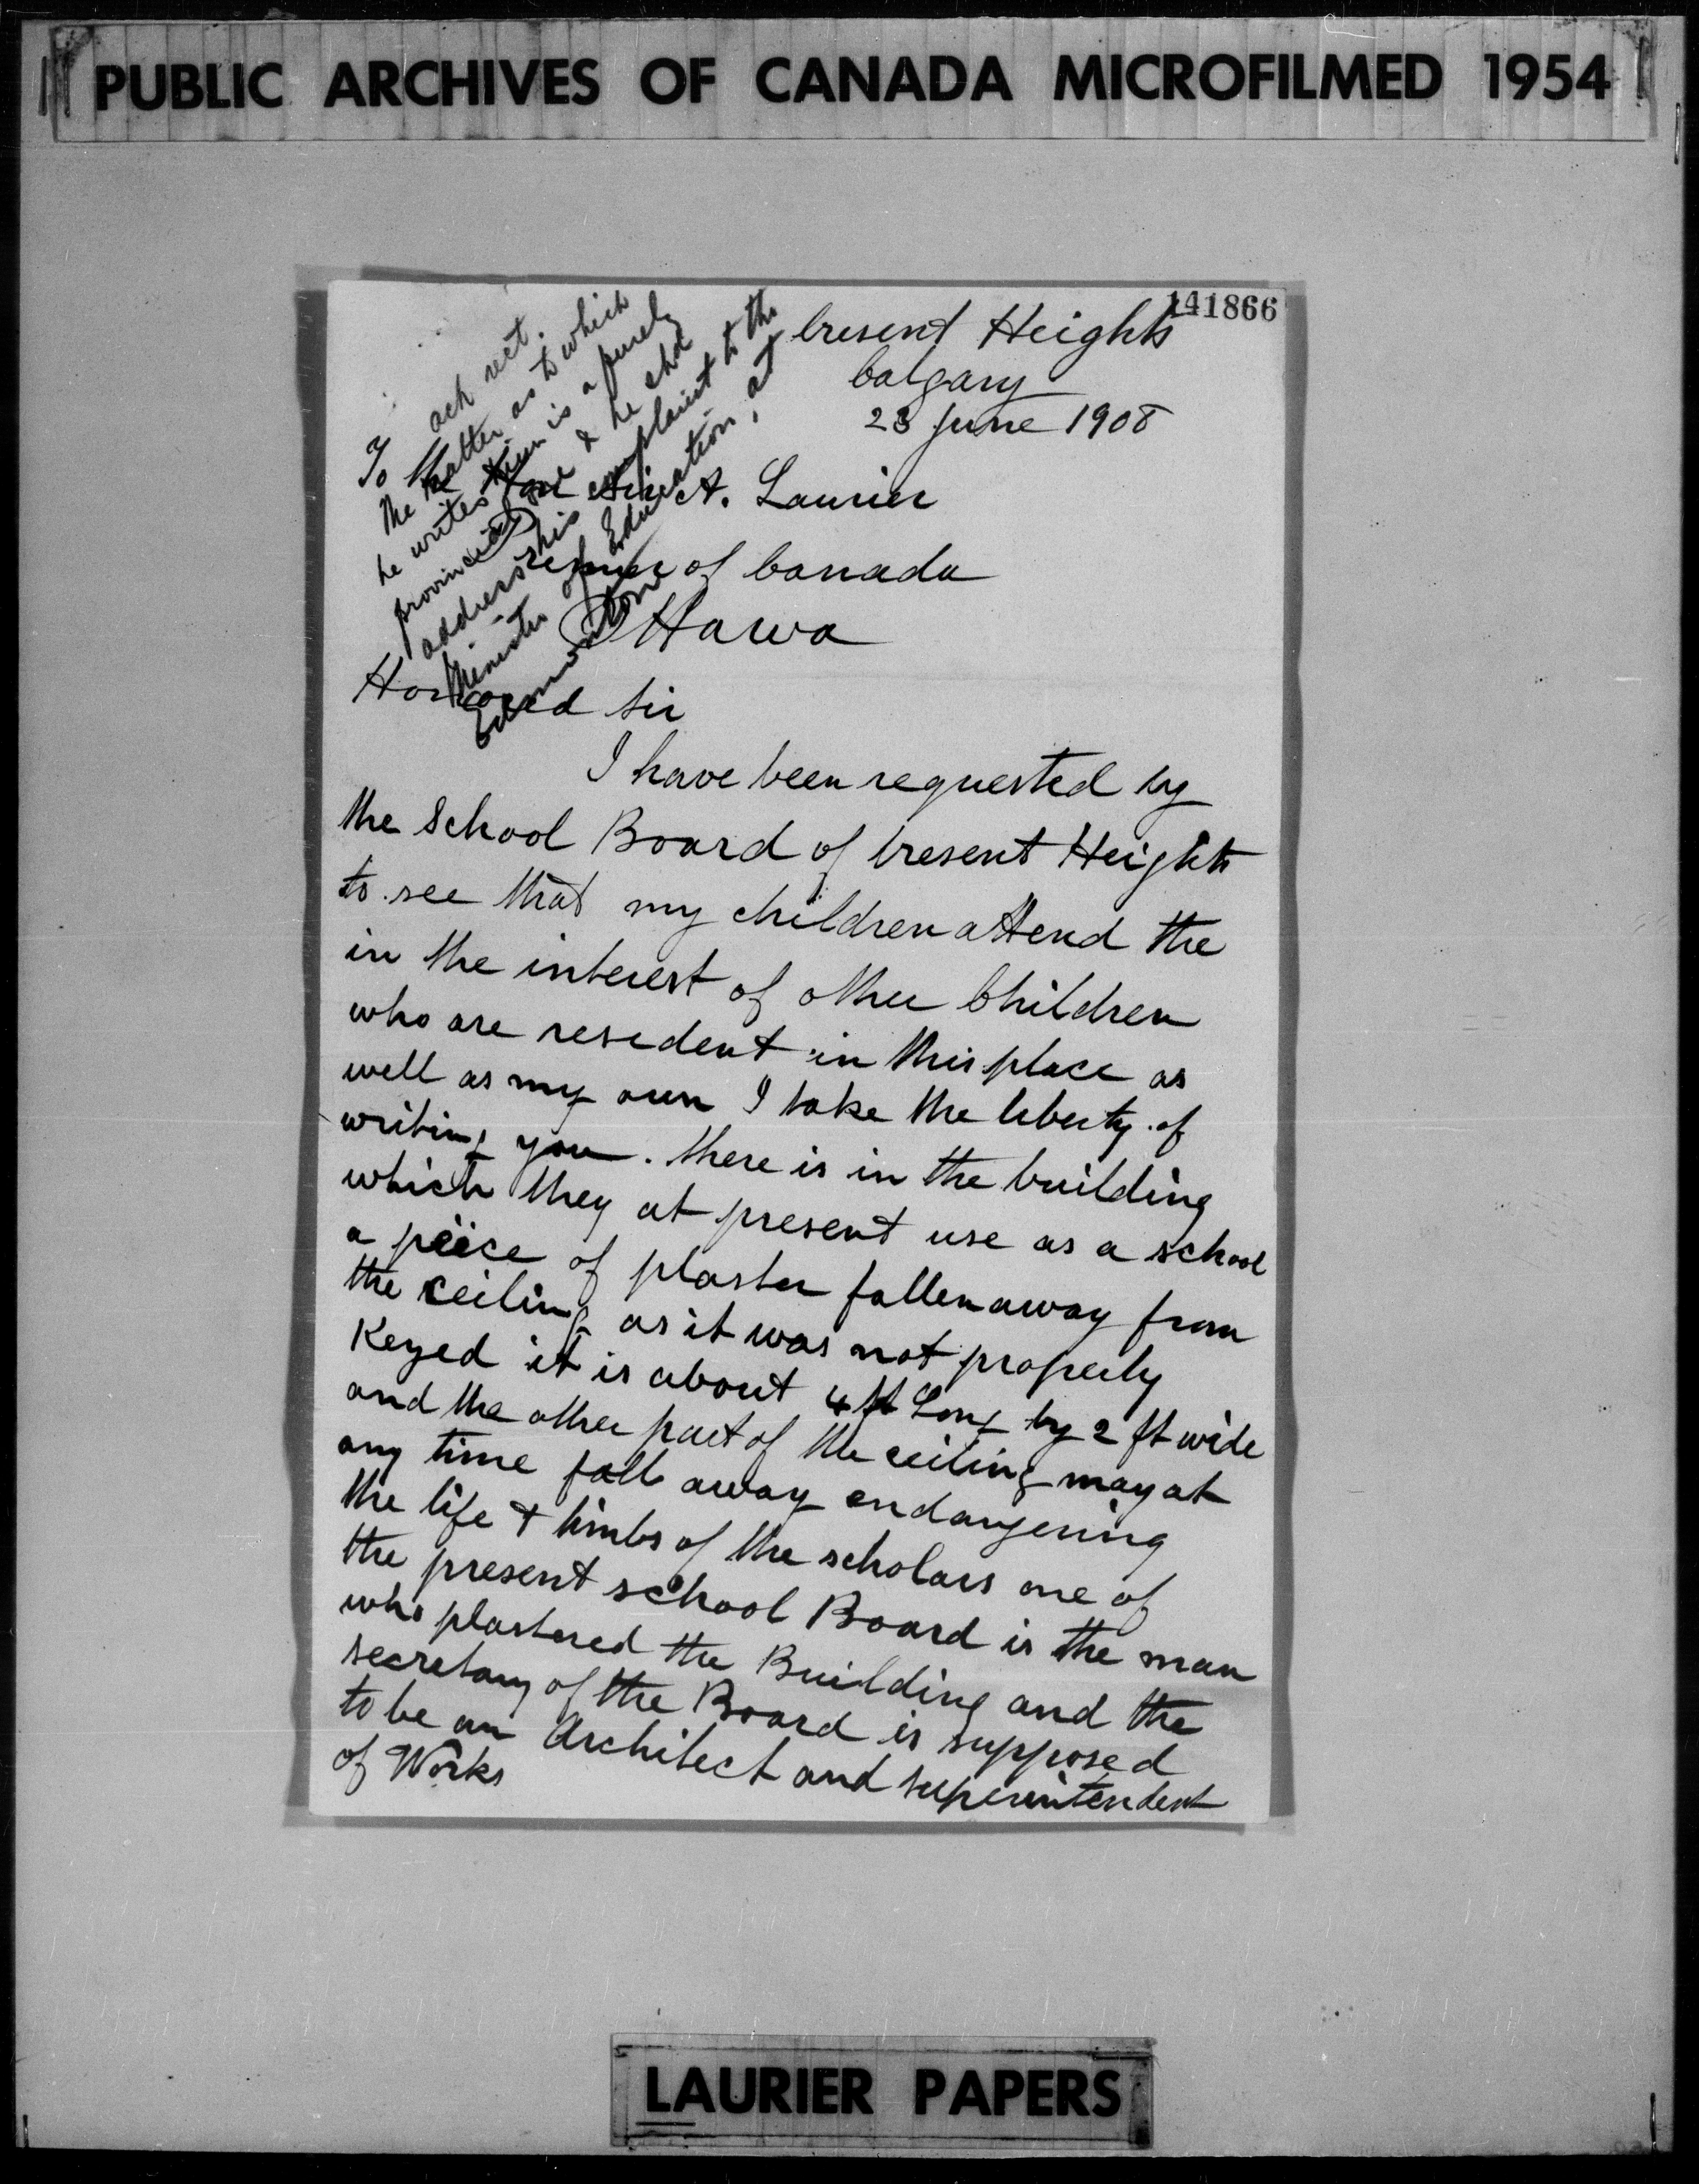 PUBLIC ARCHIVES OF CANADA MICROFILMED 1954
141866
Cresent Heights
Calgary
23 June 1908
To ack rect.
The matter as to which
he writes him is a purely
provincial one & he shd
address his complaint to the
Minister of Education, at
Edmonton
The Hon Sir A. Laurier
Premier of Canada
Ottawa
Honored Sir
I have been requested by
the School Board of Cresent Heights
to see that my children attend the
in the interest of other Children
who are resedent in this place as
well as my own I take the liberty of
writing you. there is in the building
which they at present use as a school
a peice of plaster fallen away from
the ceiling as it was not properly
Keyed it is about 4 ft Long by 2 ft wide
and the other part of the ceiling may at
any time fall away endangering
the life & limbs of the scholars one of
the present school Board is the man
who plastered the Building and the
secretary of the Board is supposed
to be an Architect and superintendent
of Works
LAURIER PAPERS